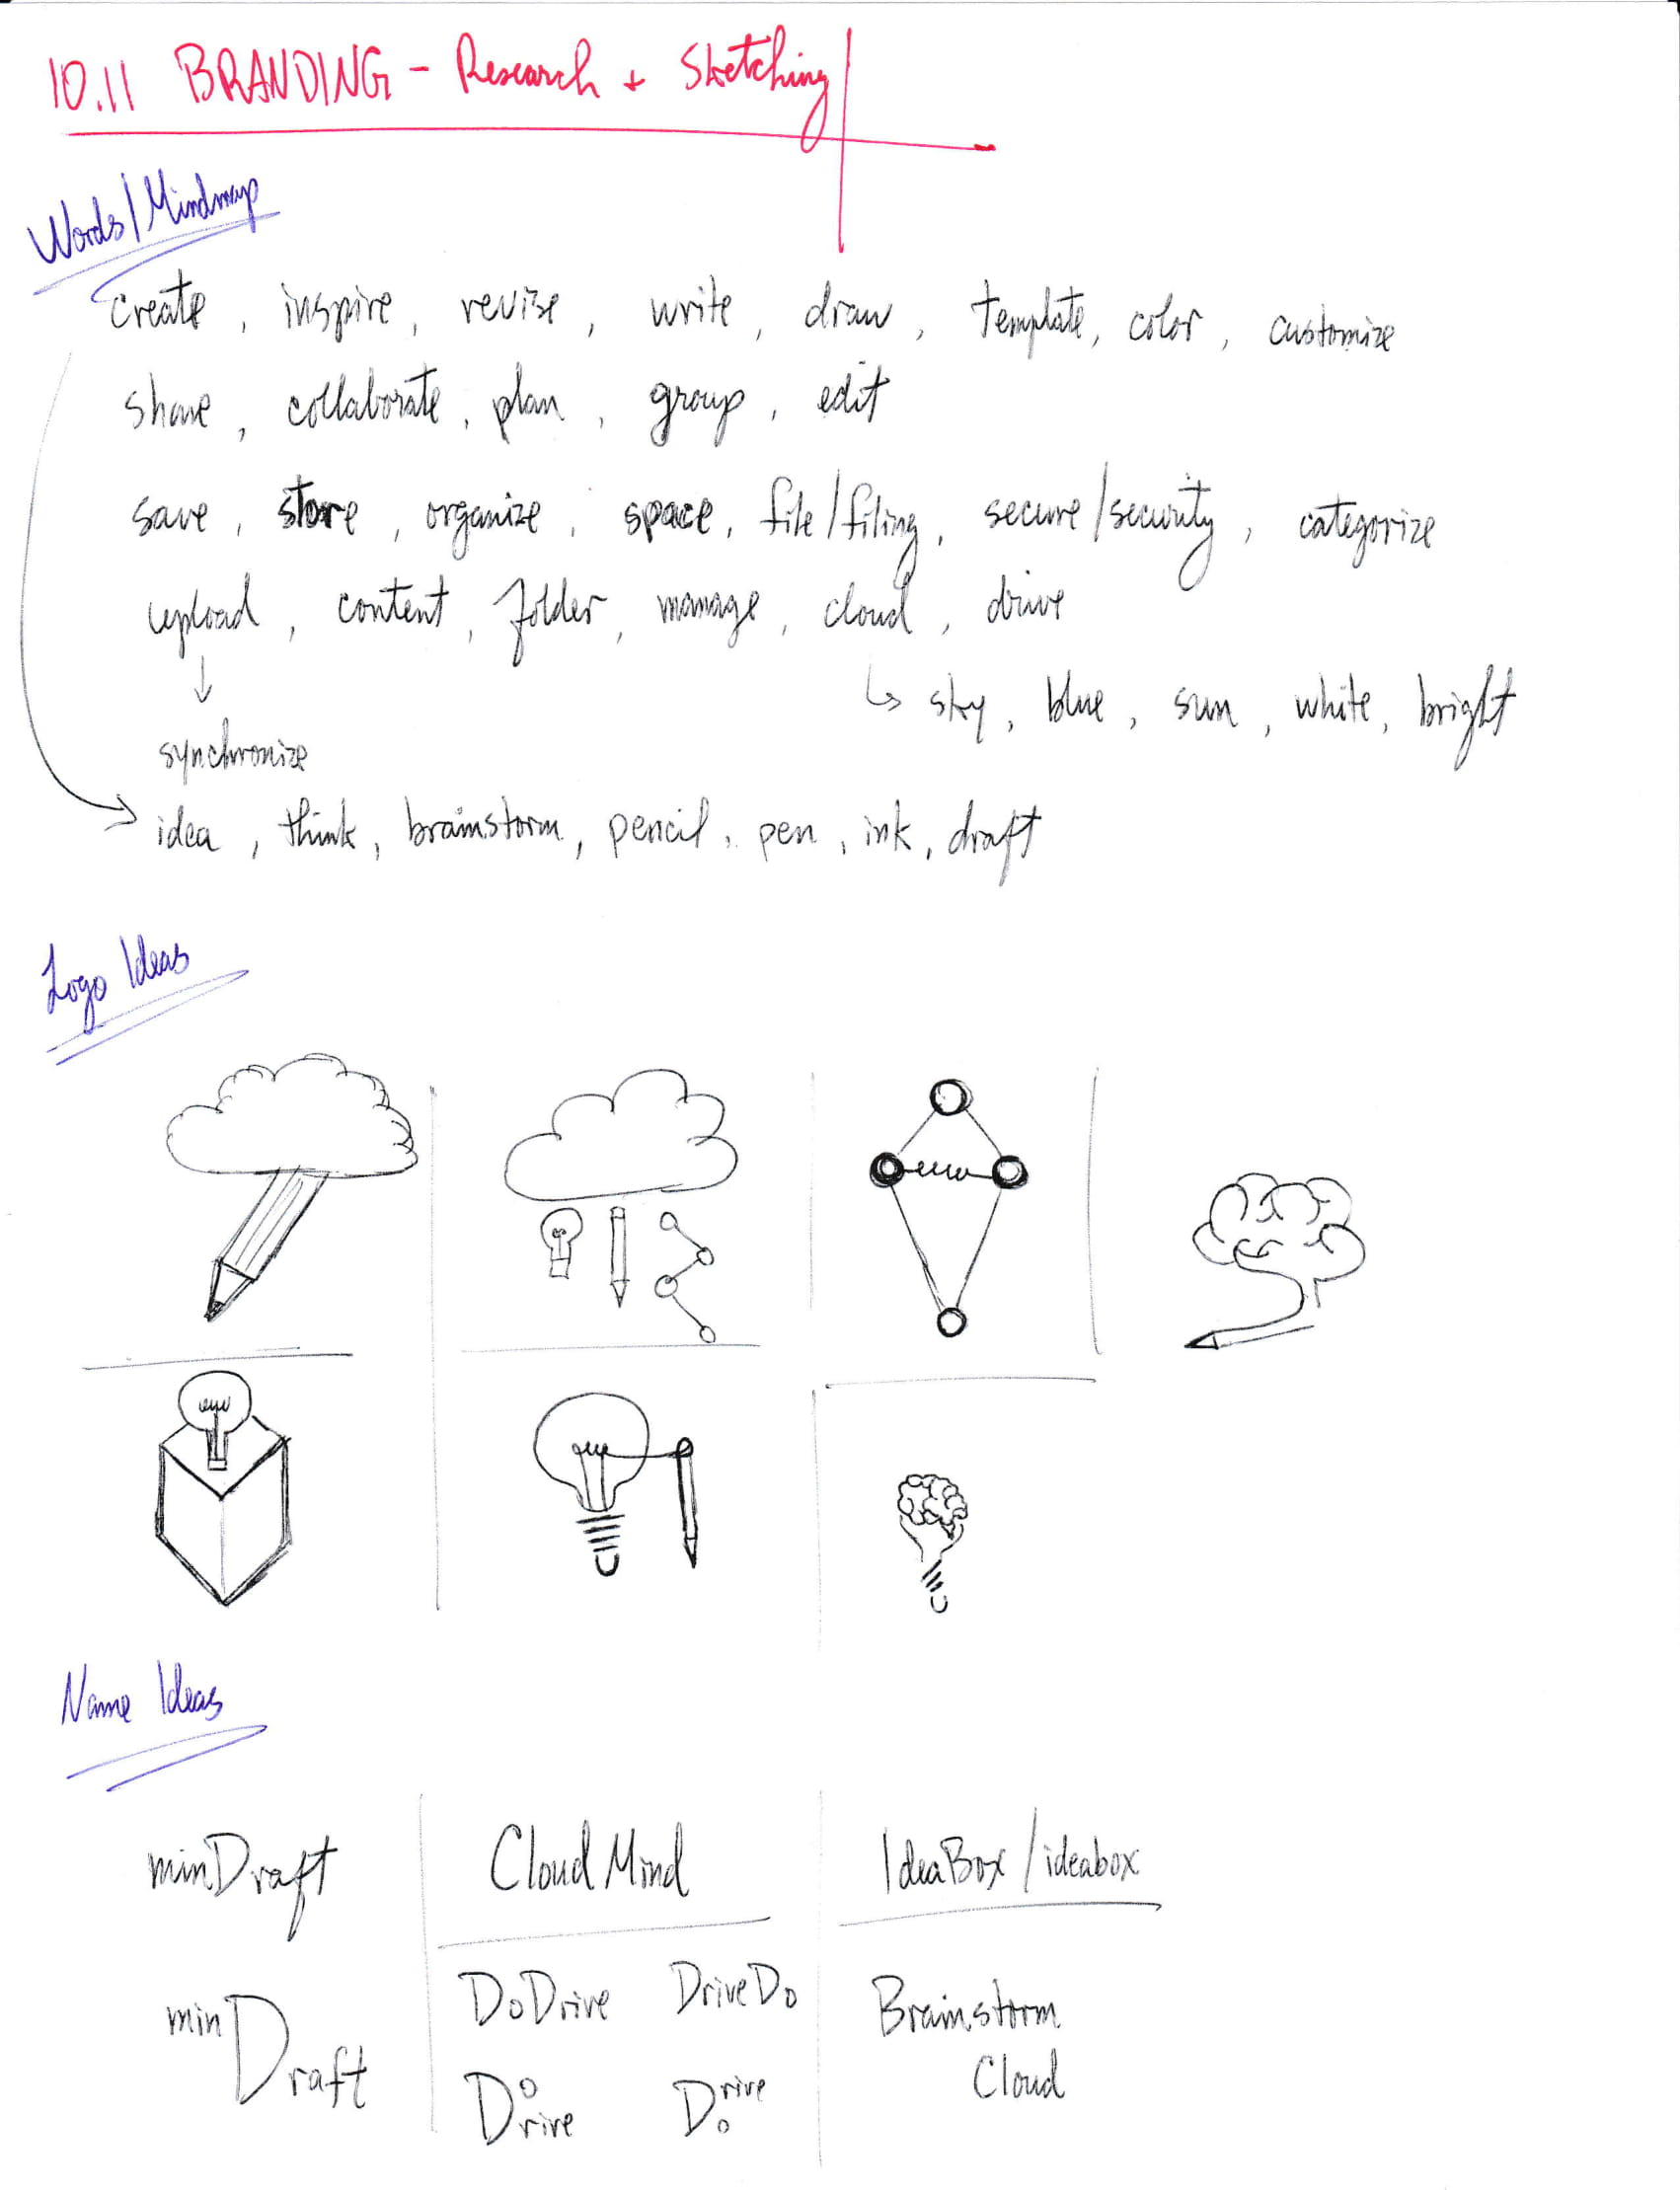 10.11 BRANDING - Research + Sketching
Words/Mindmap
create, inspire, revise, write, draw, template, color, customize
share, collaborate, plan, group, edit
save, store, organize, space, file/filing, secure/security, categorize
upload, content, folder, manage, cloud, drive
↓
↳ sky, blue, sun, white, bright
synchronize
idea, think, brainstorm, pencil, pen, ink, draft
Logo Ideas
Name Ideas
minDraft
CloudMind
IdeaBox/ideabox
minDraft
DoDrive DriveDo
Brainstorm
Cloud
DoDrive
DriveDo